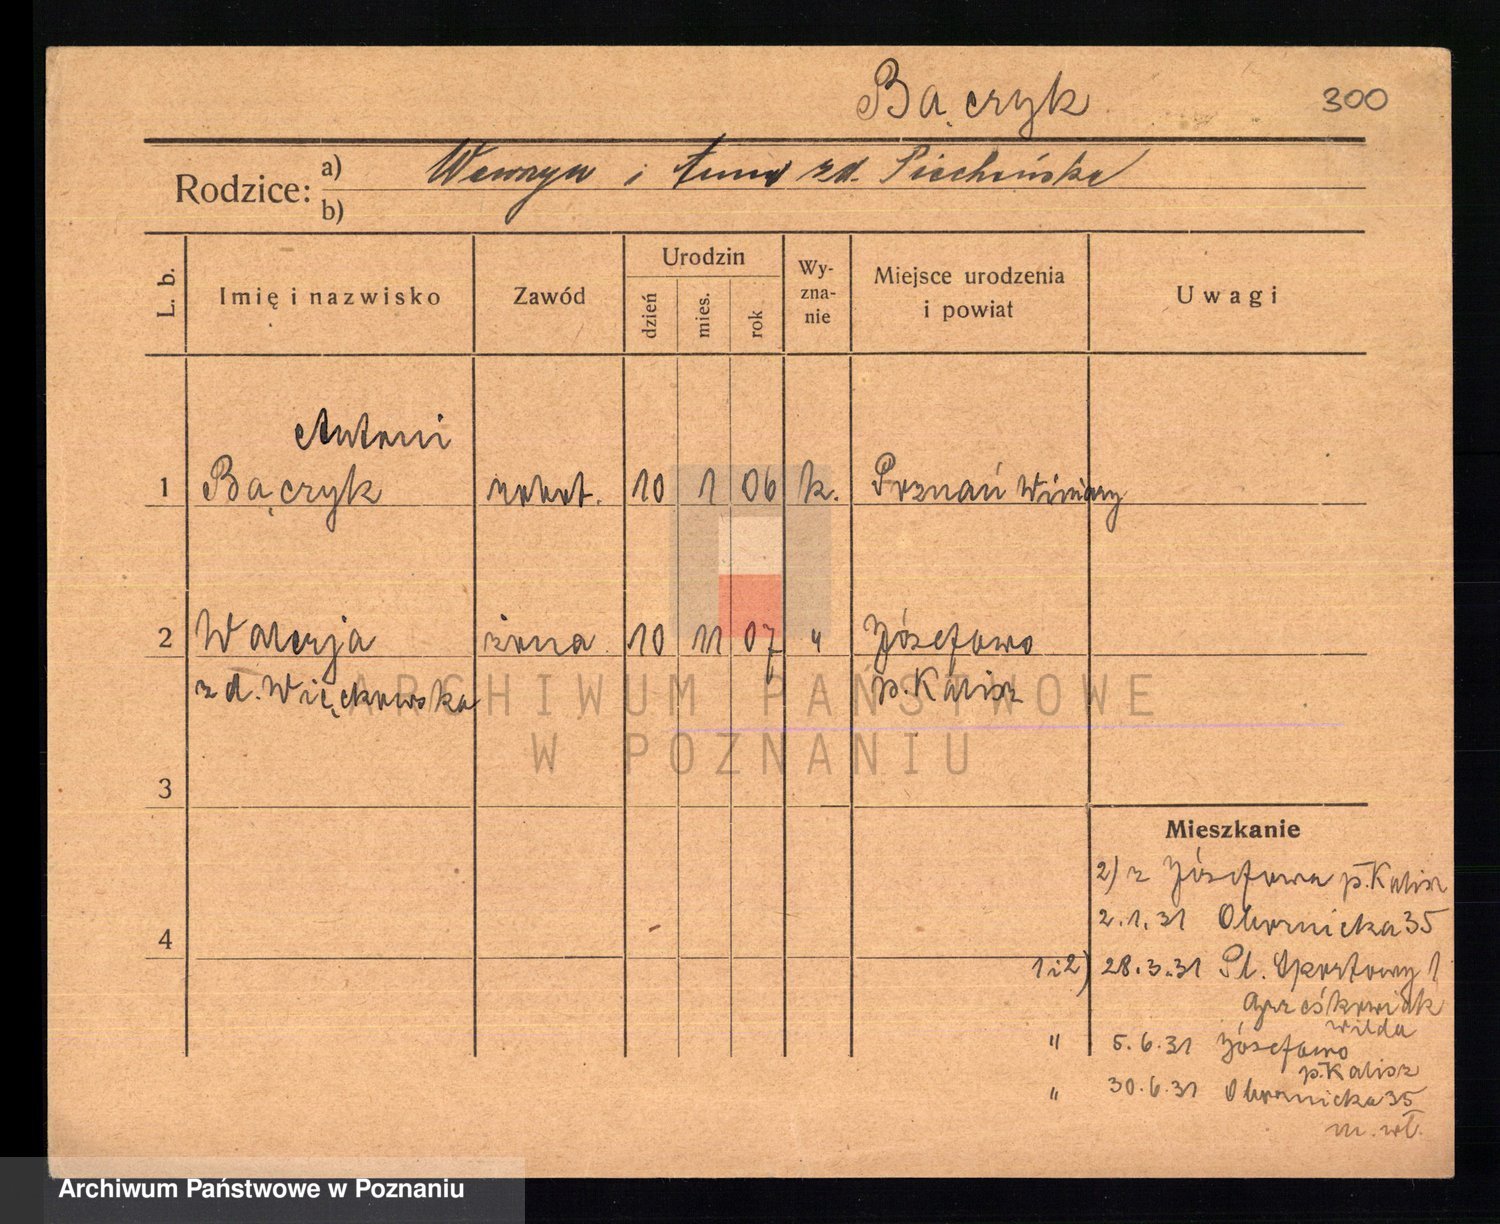 Bączyk
300
Rodzice:
a) Wawrzyn i Anna zd. Piechińska
b)
L. b.
Imię i nazwisko
Zawód
Urodzin
dzień
mies.
rok
Wy-
zna-
nie
Miejsce urodzenia
i powiat
Uwagi
Antoni
1 Bączyk robot. 10 1 06 k. Poznań Winiary
2 Walerja żona 10 11 07 " Józefowo
zd. Więckowska p. Kalisz
3
4
Mieszkanie
2) z Józefowa p. Kalisz
2.1.31 Obornicka 35
1 i 2) 28.3.31 Pl. Sportowy 1
Wilda
" 5.6.31 Józefowo
p. Kalisz
" 30.6.31 Obornicka 35
m. wł.
ARCHIWUM PAŃSTWOWE
W POZNANIU
Archiwum Państwowe w Poznaniu